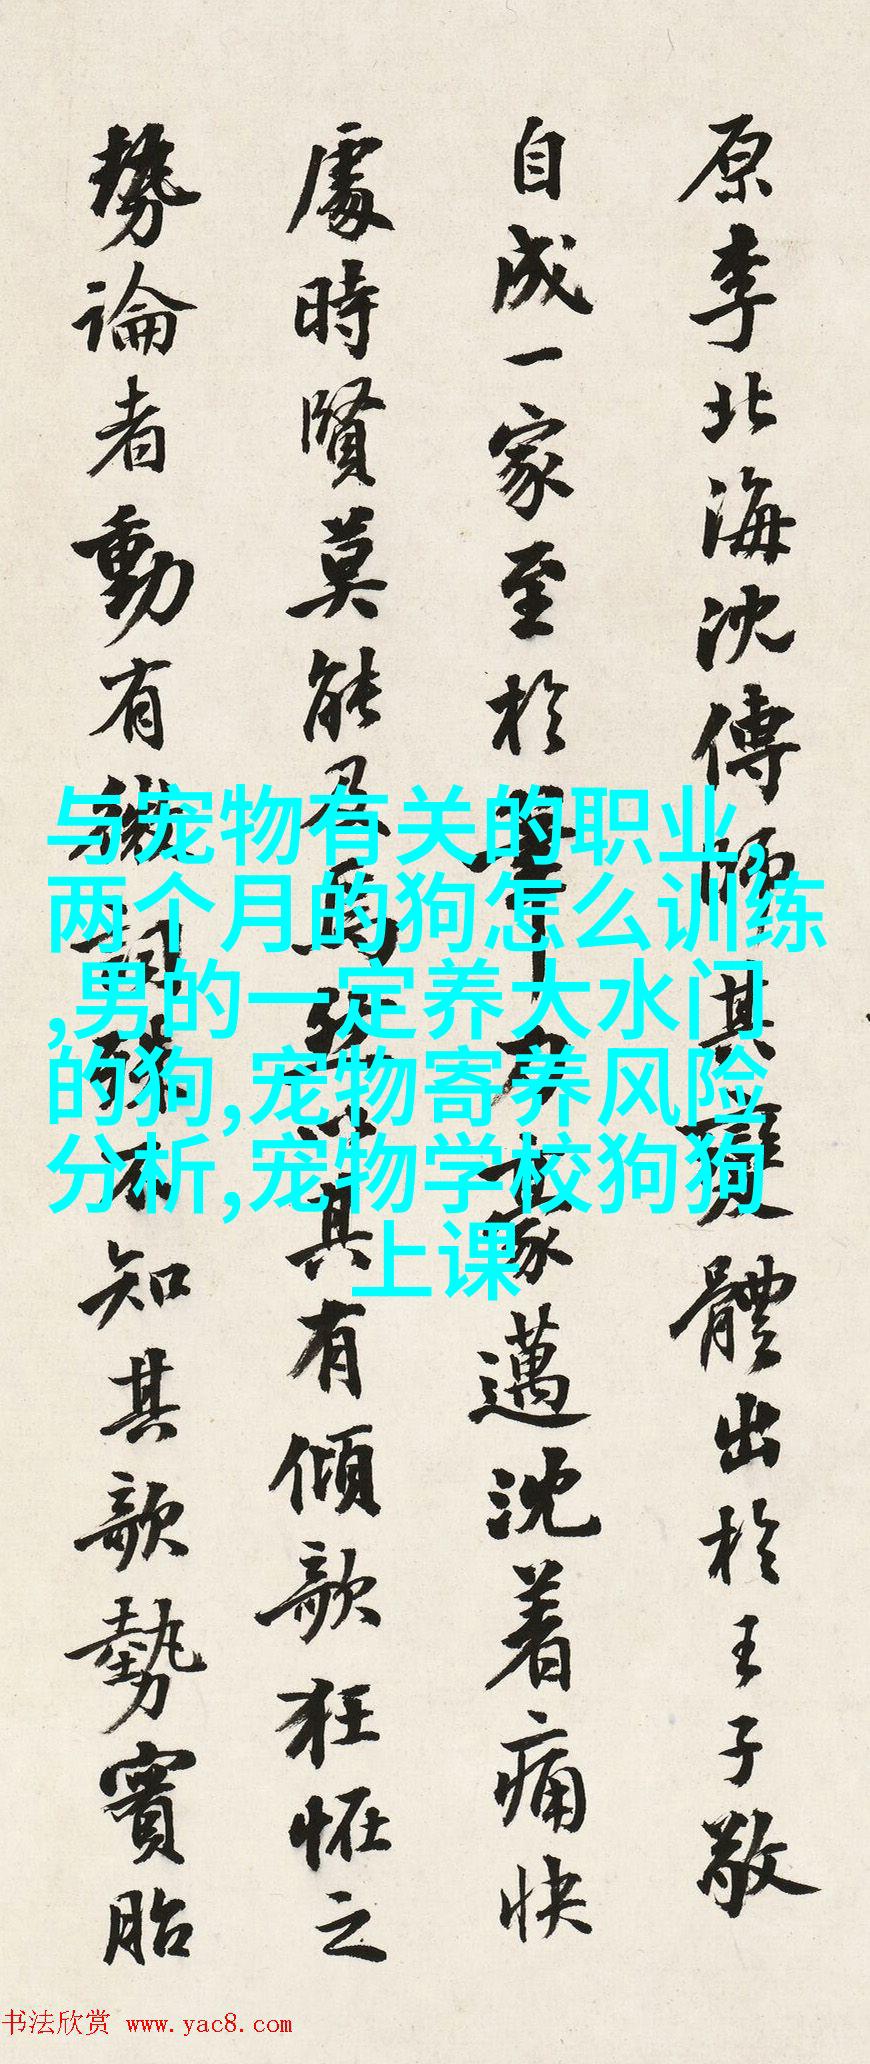 原李北海沈傳師其變體出於王子敬
自成一家至於筆力豪邁沈着痛快
處時賢莫能及焉然以其有傾欹狂怪之
勢論者動有微詞殊不知其欹勢實胎
与宠物有关的职业,
两个月的狗怎么训练
,男的一定养大水门
的狗,宠物寄养风险
分析,宠物学校狗狗
上课
书法欣赏 www.yac8.com